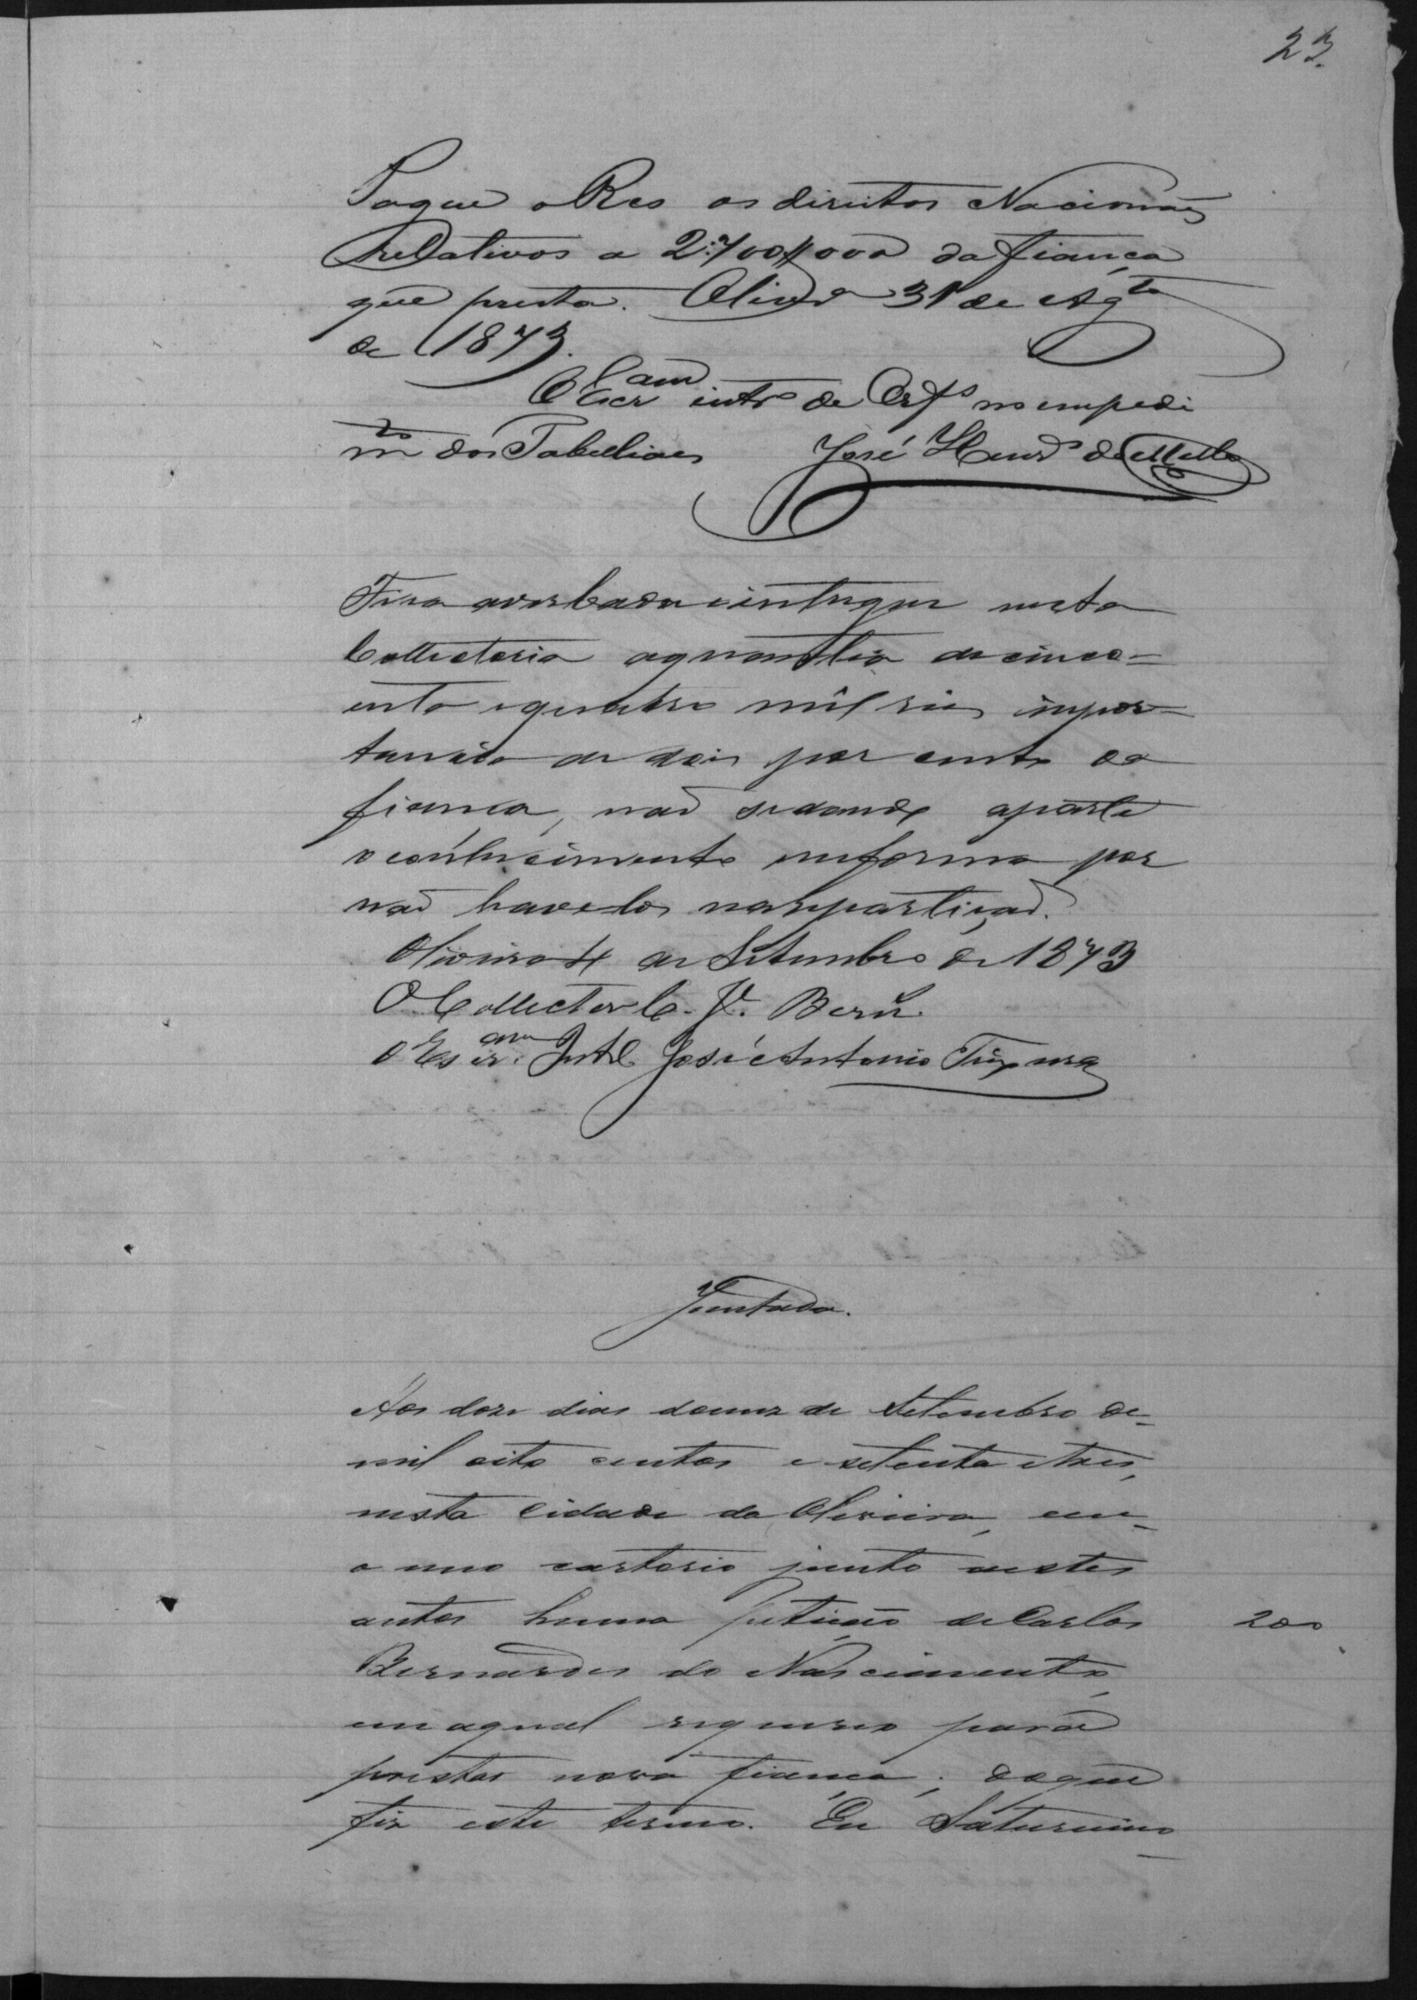 23.
Pague o Reo os direitos Nacionaes
relativos a 2:700$000 da fiança
que presta. Olivrª 31 de Agto
de 1873.
O Escram intº de Orfs no impedi
mto dos Tabelliaes José Henrs de Mello
Fica averbada e entregue nesta
Collectoria a quantia de cinco-
enta e quatro mil reis impor-
tancia de dois por cento da
fiança, não se dando a parte
o conhecimento em forma por
não havelos na repartição.
Oliveira 4 de Setembro de 1873
O Collector C. J. Bern.
O Escram Intº José Antonio
Juntada.
Aos doze dias do mez de Setembro de-
mil oito centos e setenta e tres,
nesta Cidade da Oliveira, em-
o meo cartorio junto a estes
autos huma petição de Carlos 200
Bernardes do Nascimento,
em a qual requereo para
prestar nova fiança; do que
fiz este termo. Eu Saturnino